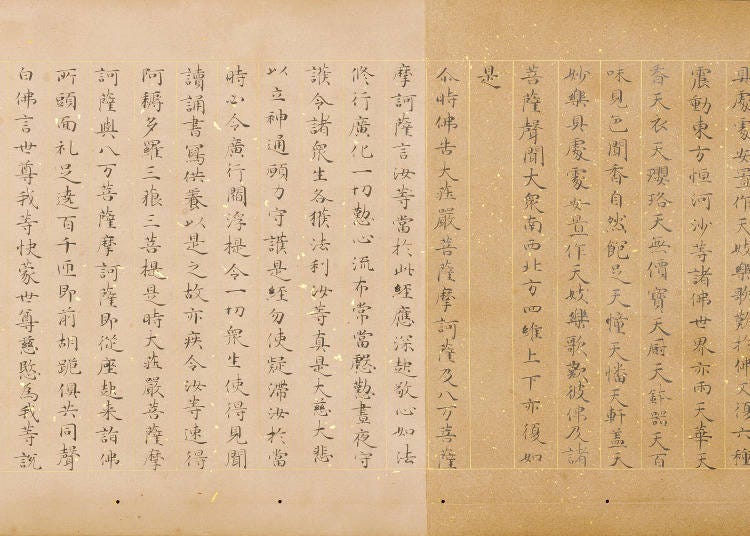 具處處安置作天妓樂歌歎於佛又復六種
震動東方恒河沙等諸佛世界亦雨天華天
香天衣天瓔珞天無價寶天厨天鉢器天百
味見色聞香自然飽足天幢天幡天軒盖天
妙樂具處處安置作天妓樂歌歎彼佛及諸
菩薩聲聞大衆南西北方四維上下亦復如
是
尒時佛告大莊嚴菩薩摩訶薩及八万菩薩
摩訶薩言汝等當於此經應深起敬心如法
修行廣化一切懃心流布常當慇懃晝夜守
護令諸衆生各獲法利汝等真是大慈大悲
以立神通願力守護是經勿使疑滯汝於當
時必令廣行閻浮提令一切衆生使得見聞
讀誦書寫供養以是之故亦疾令汝等速得
阿耨多羅三藐三菩提是時大莊嚴菩薩摩
訶薩與八万菩薩摩訶薩即從座起来詣佛
所頭面礼足遶百千匝即前胡跪俱共同聲
白佛言世尊我等快蒙世尊慈愍為我等說